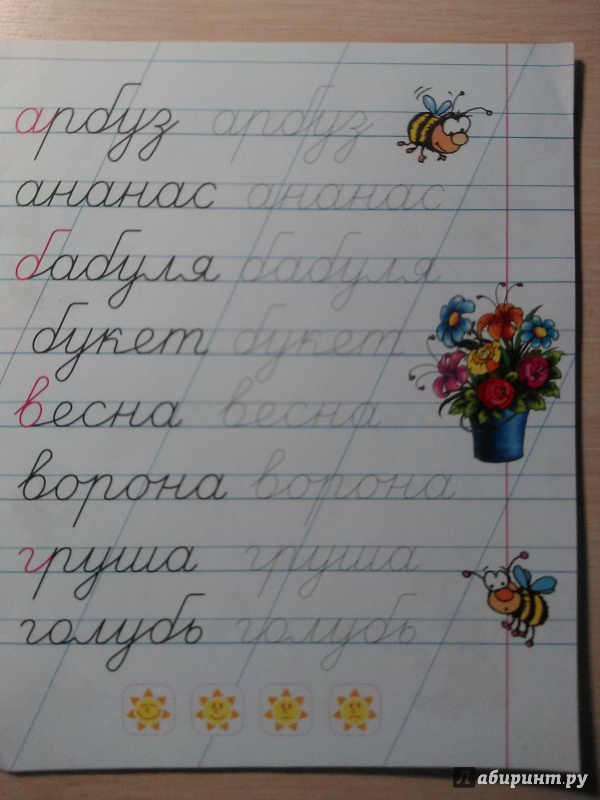 арбуз арбуз
ананас ананас
бабуля бабуля
букет букет
весна весна
ворона ворона
груша груша
голубь голубь
Лабиринт.ру